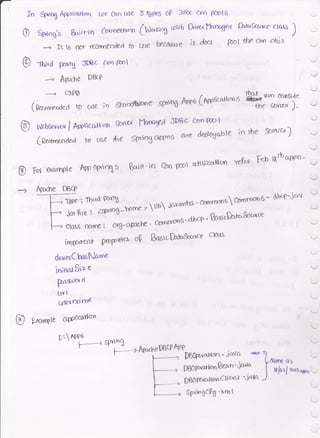 In Spring Application, we can use 3 types of JDBC con pools
① Spring's Built-in Connection (Working with DriverManager DataSource class)
→ It is not recommended to use because it does pool the con objs
② Third party JDBC Con pool
→ Apache DBCP
→ C3P0
(Recommended to use in Standalone spring Apps (Applications that run outside the server).
③ WebServer / Application Server Managed JDBC Con pool
(Recommended to use the Spring appns are deployable in the Server)
④ For example App spring's Built-in Con pool utilization refer Feb 18th appn.
→ Apache DBCP
→ Type : Third party
→ jar file : <spring_home> \ lib \ jakarta-commons \ commons-dbcp.jar
→ Class name : org.apache.commons.dbcp.BasicDataSource
important properties of BasicDataSource Class
driverClassName
initialSize
password
url
username
④ Example application
E:\Apps
→ Spring
→ ApacheDBCPApp
→ DBOperation.java
→ DBOperationBean.java
Same as
→ DBOperationClient.java
→ SpringCfg.xml